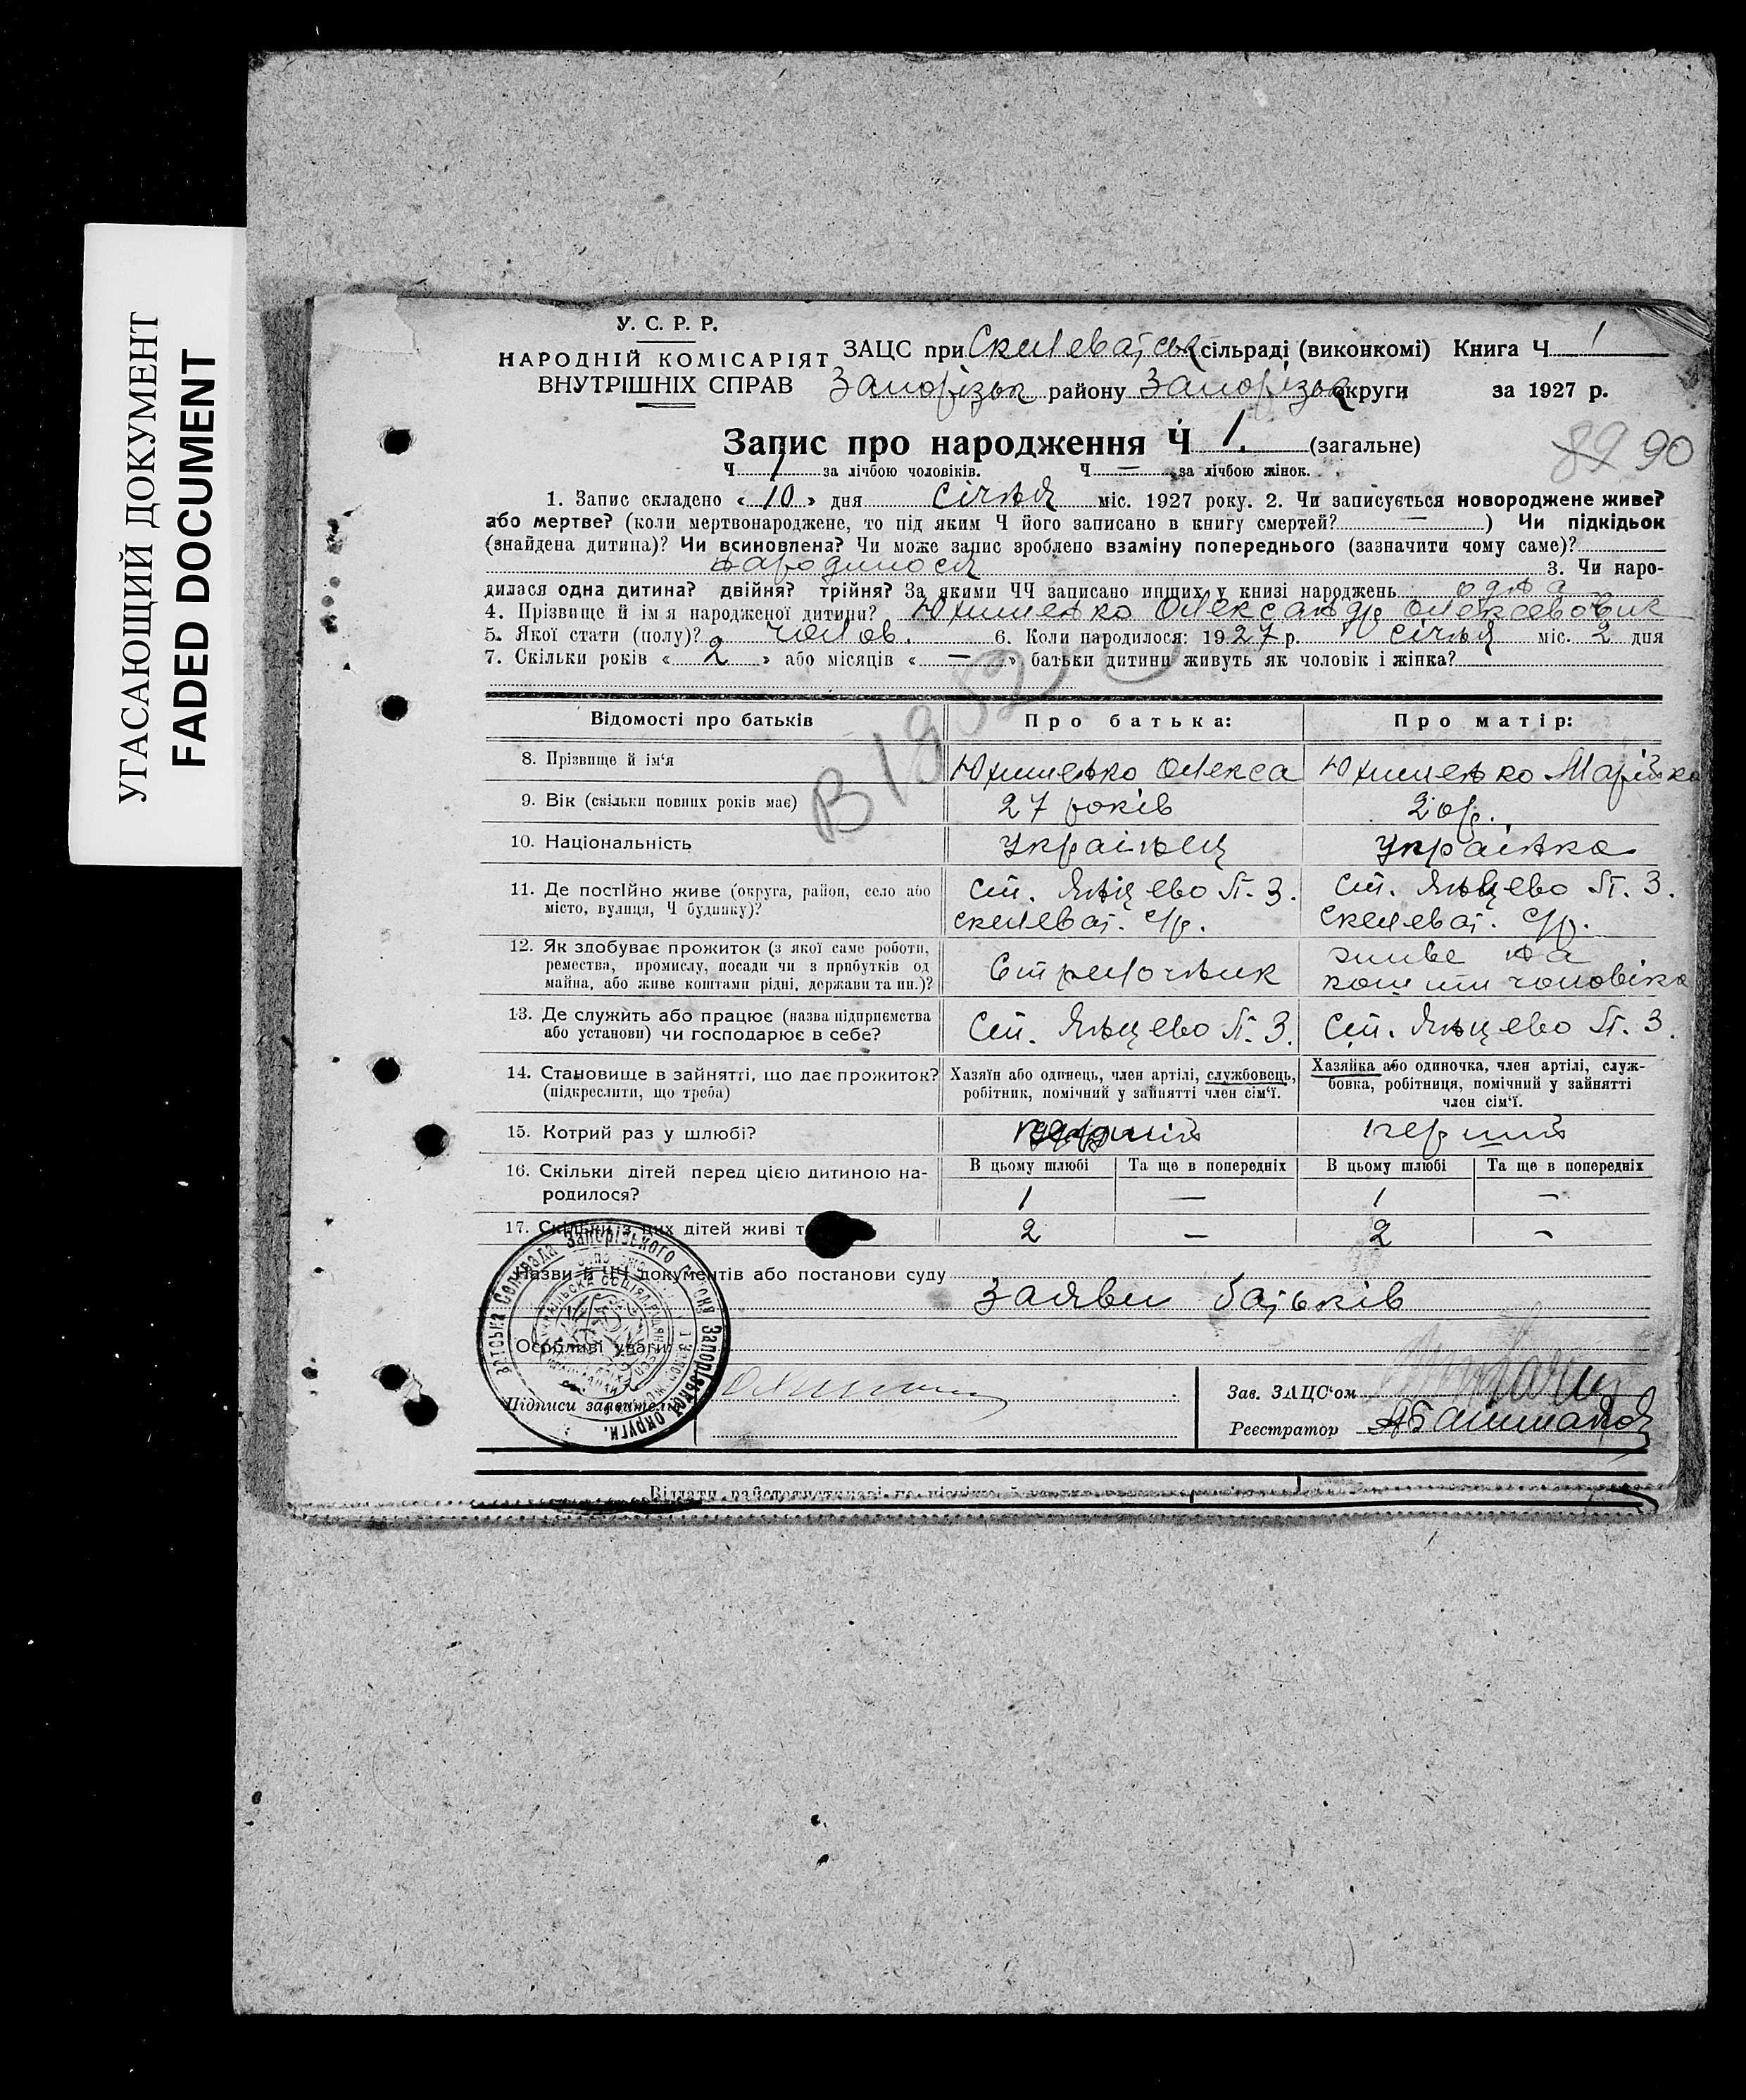 УГАСАЮЩИЙ ДОКУМЕНТ
FADED DOCUMENT
У. С. Р. Р.
НАРОДНІЙ КОМІСАРІЯТ
ВНУТРІШНІХ СПРАВ
ЗАЦС при Скелеватськ сільраді (виконкомі) Книга Ч 1
Запорізьк району Запорізьк округи за 1927 р.
Запис про народження Ч 1. (загальне)
89 90
Ч 1 за лічбою чоловіків. Ч — за лічбою жінок.
1. Запис складено « 10 » дня Січня міс. 1927 року. 2. Чи записується новороджене живе?
або мертве? (коли мертвонароджене, то під яким Ч його записано в книгу смертей? — ) Чи підкідьок
(знайдена дитина)? Чи всиновлена? Чи може запис зроблено взаміну попереднього (зазначити чому саме)?
народилося 3. Чи наро-
дилася одна дитина? двійня? трійня? За якими ЧЧ записано инших у книзі народжень одна
4. Прізвище й ім я народженої дитини? Юхименко Олександр Олексєвович
5. Якої стати (полу)? чолов. 6. Коли народилося: 1927 р. Січня міс. 2 дня
7. Скільки років « 2 » або місяців « — » батьки дитини живуть як чоловік і жінка?
Відомості про батьків Про батька: Про матір:
8. Прізвище й ім‘я Юхименко Олекса Юхименко Марійка
9. Вік (скільки повних років має) 27 років 20р.
10. Національність Українец Українка
11. Де постійно живе (округа, район, село або Ст. Янцево П. З. Ст. Янцево П. З.
місто, вулиця, Ч будинку)? Скелеват. С/р. Скелеват. С/р.
12. Як здобуває прожиток (з якої саме роботи, живе на
ремества, промислу, посади чи з прибутків од Стрелочник
майна, або живе коштами рідні, держави та ин.)? кошти чоловіка
13. Де служить або працює (назва підприємства Ст. Янцево П. З. Ст. Янцево П. З.
або установи) чи господарює в себе?
14. Становище в зайнятті, що дає прожиток? Хазяїн або одинець, член артілі, службовець, Хазяйка або одиночка, член артілі, служ-
(підкреслити, що треба) робітник, помічний у зайнятті член сім‘ї. бовка, робітниця, помічний у зайнятті
член сім‘ї.
15. Котрий раз у шлюбі? перший
16. Скільки дітей перед цією дитиною на- В цьому шлюбі Та ще в попередніх В цьому шлюбі Та ще в попередніх
родилося? 1 — 1 —
17. Скільки із них дітей живі 2 — 2 —
Назви й ЧЧ документів або постанови суду
Заяви батьків
Особливі уваги
Зав. ЗАЦС‘ом
Підписи заявителів
Реєстратор